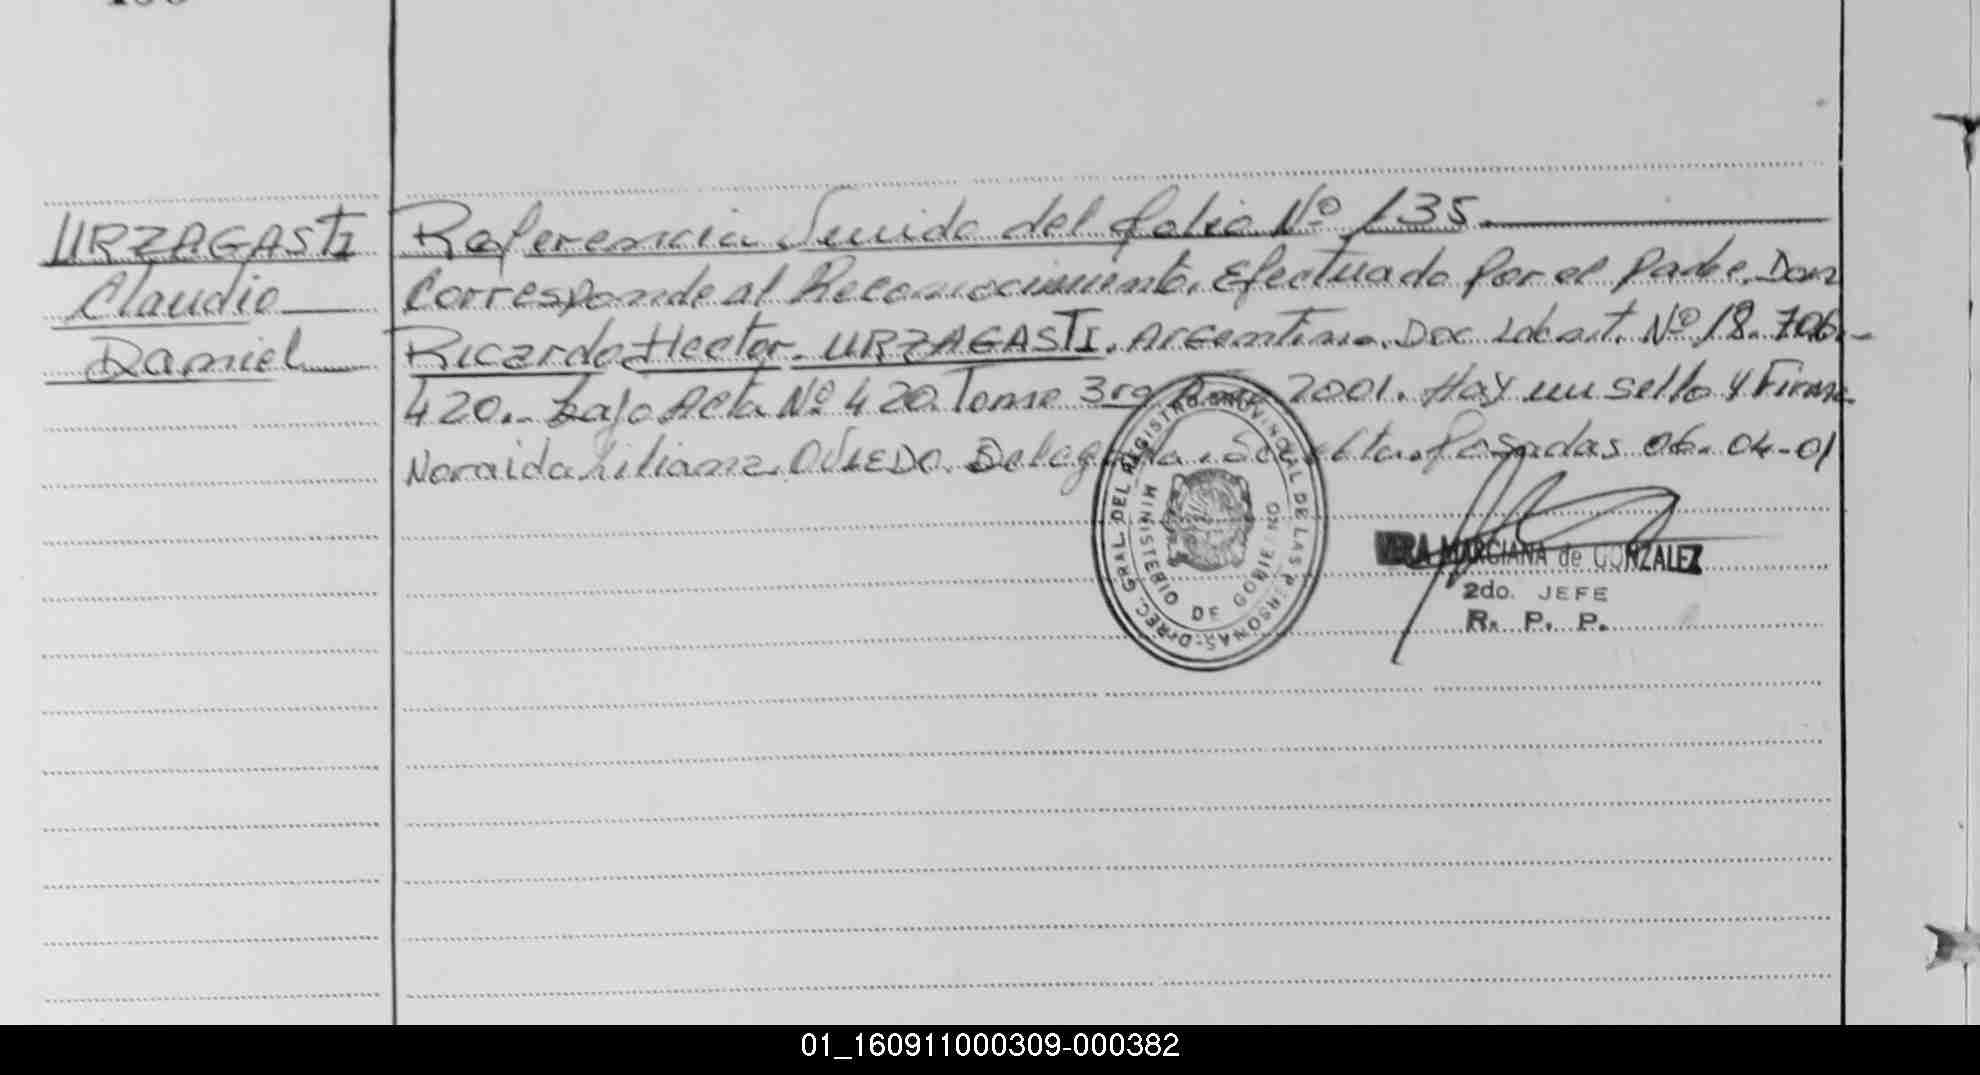 URZAGASTI
Claudio
Daniel
Referencia Venida del folio Nº 135.
Corresponde al Reconocimiento. Efectuado por el padre. Don
Ricardo Hector. URZAGASTI. Argentino. Doc. Ident. Nº 18.706.-
420.- bajo Acta Nº 420. Tomo 3ro 2001. Hay un sello y Firma
Noraida Liliana. OVIEDO. Delegada. Posadas 06-04-01
DIREC. GRAL. DEL REGISTRO PROVINCIAL DE LAS PERSONAS
MINISTERIO DE GOBIERNO
VERA MARCIANA de GONZALEZ
2do. JEFE
R. P. P.
01_160911000309-000382